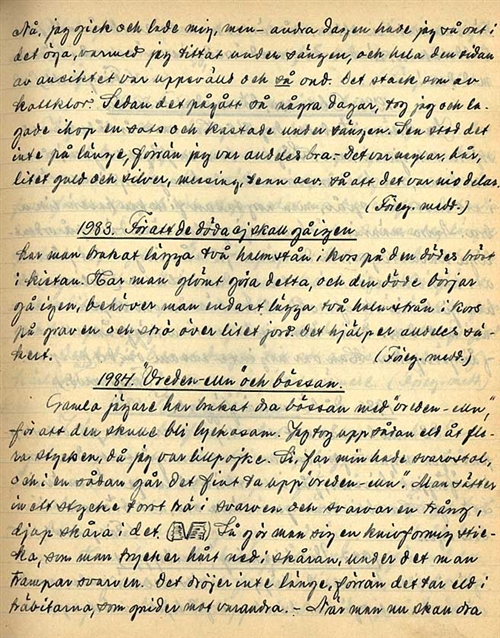 Nå, jag gick och lade mig, men andra dagen hade jag så ont i
det öga, varmed jag tittat under sängen, och hela den sidan
av ansiktet var uppsvälld och så ond. Det stack som av
kattklor. Sedan det pågått så några dagar, tog jag och la-
gade ihop en sats och kastade under sängen. Sen stod det
inte på länge, förrän jag var alldeles bra. Det var naglar, hår,
litet guld och silver, messing, tenn osv. så att det var nio delar.
(Föreg. medd.)
1983. För att de döda ej skall gå igen
har man brukat lägga två halmstrån i kors på den dödes bröst
i kistan. Har man glömt göra detta, och den döde börjar
gå igen, behöver man endast lägga två halmstrån i kors
på graven och strö över litet jord. Det hjälper alldeles sä-
kert. (Föreg. medd.)
1984. "Vreden-eun" och bössan.
Gamla jägare har brukat dra bössan med "vreden-eun",
för att den skulle bli lyckosam. Jag tog upp sådan eld åt fle-
ra stycken, då jag var lillpojke. Si, far min hade svarvstol,
och i en sådan går det fint ta upp "vreden-eun". Man sätter
in ett stycke torrt trä i svarven och svarvar en trång,
djup skåra i det. Så gör man sig en knivformig stic-
ka, som man trycker hårt ned i skåran, under det man
trampar svarven. Det dröjer inte länge, förrän det tar eld i
träbitarna, som gnider mot varandra. - När man nu skall dra